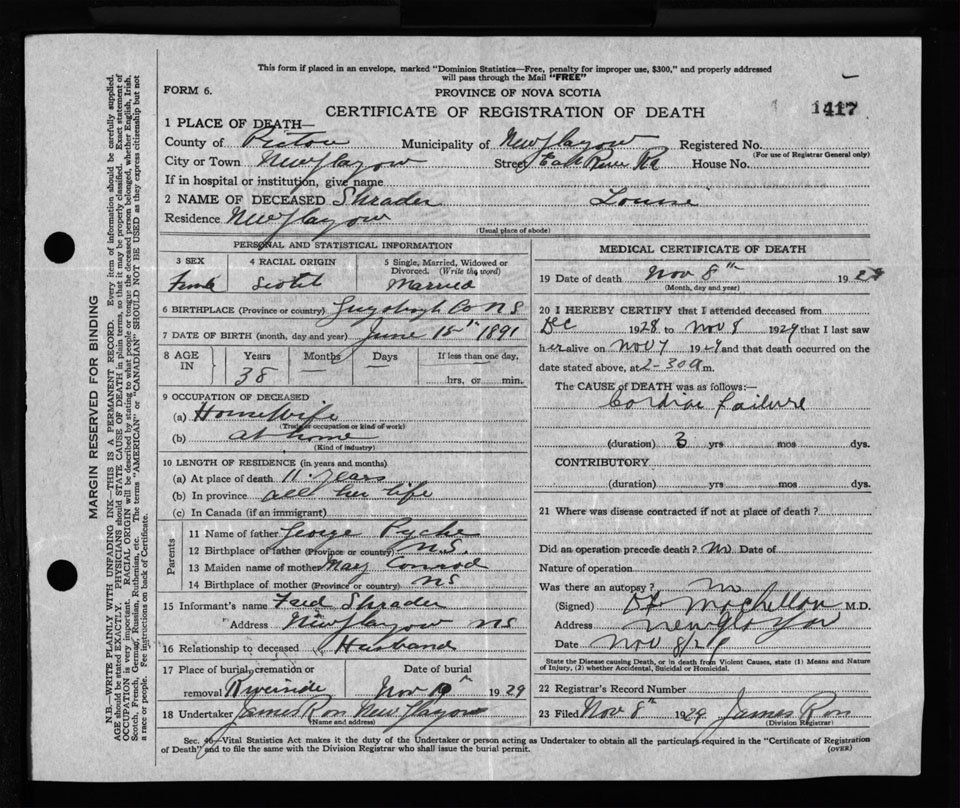 This form if placed in an envelope, marked "Dominion Statistics—Free, penalty for improper use, $300," and properly addressed
will pass through the Mail "FREE"
FORM 6.
PROVINCE OF NOVA SCOTIA
CERTIFICATE OF REGISTRATION OF DEATH
1417
1 PLACE OF DEATH—
County of Pictou Municipality of New Glasgow Registered No.
(For use of Registrar General only)
City or Town New Glasgow Street East River Rd House No.
If in hospital or institution, give name
2 NAME OF DECEASED Shrader Louise
Residence New Glasgow
(Usual place of abode)
PERSONAL AND STATISTICAL INFORMATION
3 SEX
4 RACIAL ORIGIN
5 Single, Married, Widowed or Divorced. (Write the word)
Female Scotch Married
6 BIRTHPLACE (Province or country) Guysborough Co N S
7 DATE OF BIRTH (month, day and year) June 15th 1891
8 AGE IN
Years Months Days If less than one day,
38 — — hrs, or min.
9 OCCUPATION OF DECEASED
(a) Housewife
(Trade or occupation or kind of work)
(b) at home
(Kind of industry)
10 LENGTH OF RESIDENCE (in years and months)
(a) At place of death 11 years
(b) In province all her life
(c) In Canada (if an immigrant)
Parents
11 Name of father George Pyche
12 Birthplace of father (Province or country) N.S.
13 Maiden name of mother Mary Conrod
14 Birthplace of mother (Province or country) NS
15 Informant's name Fred Shrader
Address New Glasgow NS
16 Relationship to deceased Husband
17 Place of burial, cremation or Date of burial
removal Riverside Nov 1929
18 Undertaker James Ross New Glasgow
(Name and address)
MEDICAL CERTIFICATE OF DEATH
19 Date of death Nov 8th 1929
(Month, day and year)
20 I HEREBY CERTIFY that I attended deceased from
Dec 1928 to Nov 8 1929 that I last saw
her alive on Nov 7 1929 and that death occurred on the
date stated above, at 2-30 a m.
The CAUSE OF DEATH was as follows:—
Cordiac failure
(duration) 3 yrs mos dys.
CONTRIBUTORY
(duration) yrs mos dys.
21 Where was disease contracted if not at place of death?
Did an operation precede death? no Date of
Nature of operation
Was there an autopsy? no
(Signed) M.D.
Address New Glasgow
Date Nov 8/29
State the Disease causing Death, or in death from Violent Causes, state (1) Means and Nature
of Injury, (2) whether Accidental, Suicidal or Homicidal.
22 Registrar's Record Number
23 Filed Nov 8th 1929 James Ross
(Division Registrar)
Sec. 46—Vital Statistics Act makes it the duty of the Undertaker or person acting as Undertaker to obtain all the particulars required in the "Certificate of Registration
of Death" and to file the same with the Division Registrar who shall issue the burial permit.
(OVER)
MARGIN RESERVED FOR BINDING
N.B.—WRITE PLAINLY WITH UNFADING INK—THIS IS A PERMANENT RECORD. Every item of information should be carefully supplied.
AGE should be stated EXACTLY. PHYSICIANS should STATE CAUSE OF DEATH in plain terms, so that it may be properly classified. Exact statement of
OCCUPATION is very important. RACIAL ORIGIN will be described by stating to what people or tongue the deceased person belonged, whether English, Irish,
Scotch, French, German, Russian, Ruthenian, etc. The terms "AMERICAN" or "CANADIAN" SHOULD NOT BE USED as they express citizenship but not
a race or people. See instructions on back of Certificate.